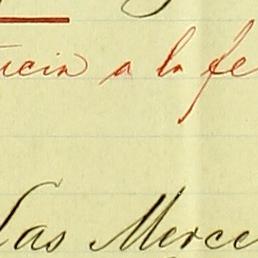 ucia a la fe
Las Merce